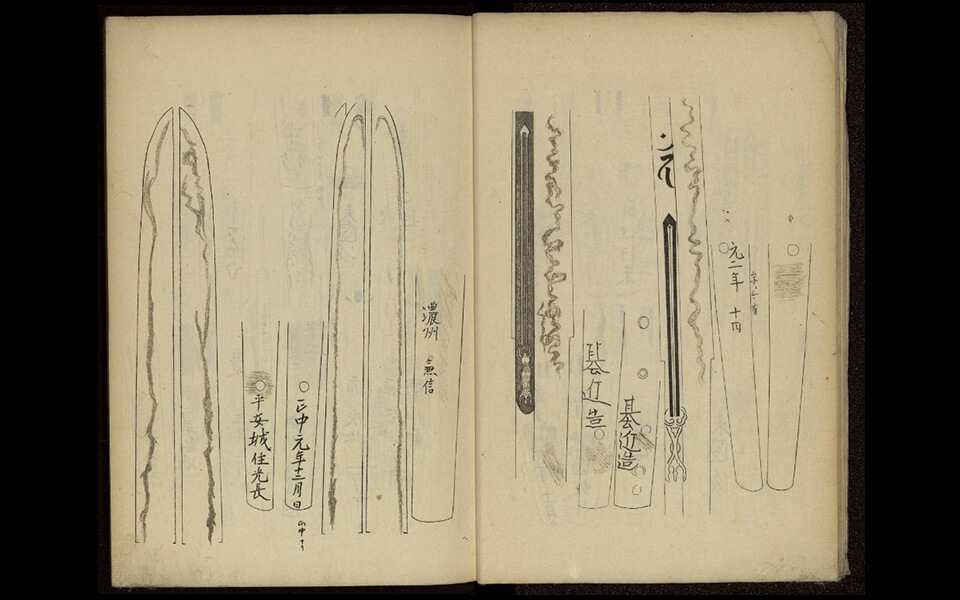 元二年 十四
基近造
基近造
濃州
兼信
正中元年十二月日
平安城住光長